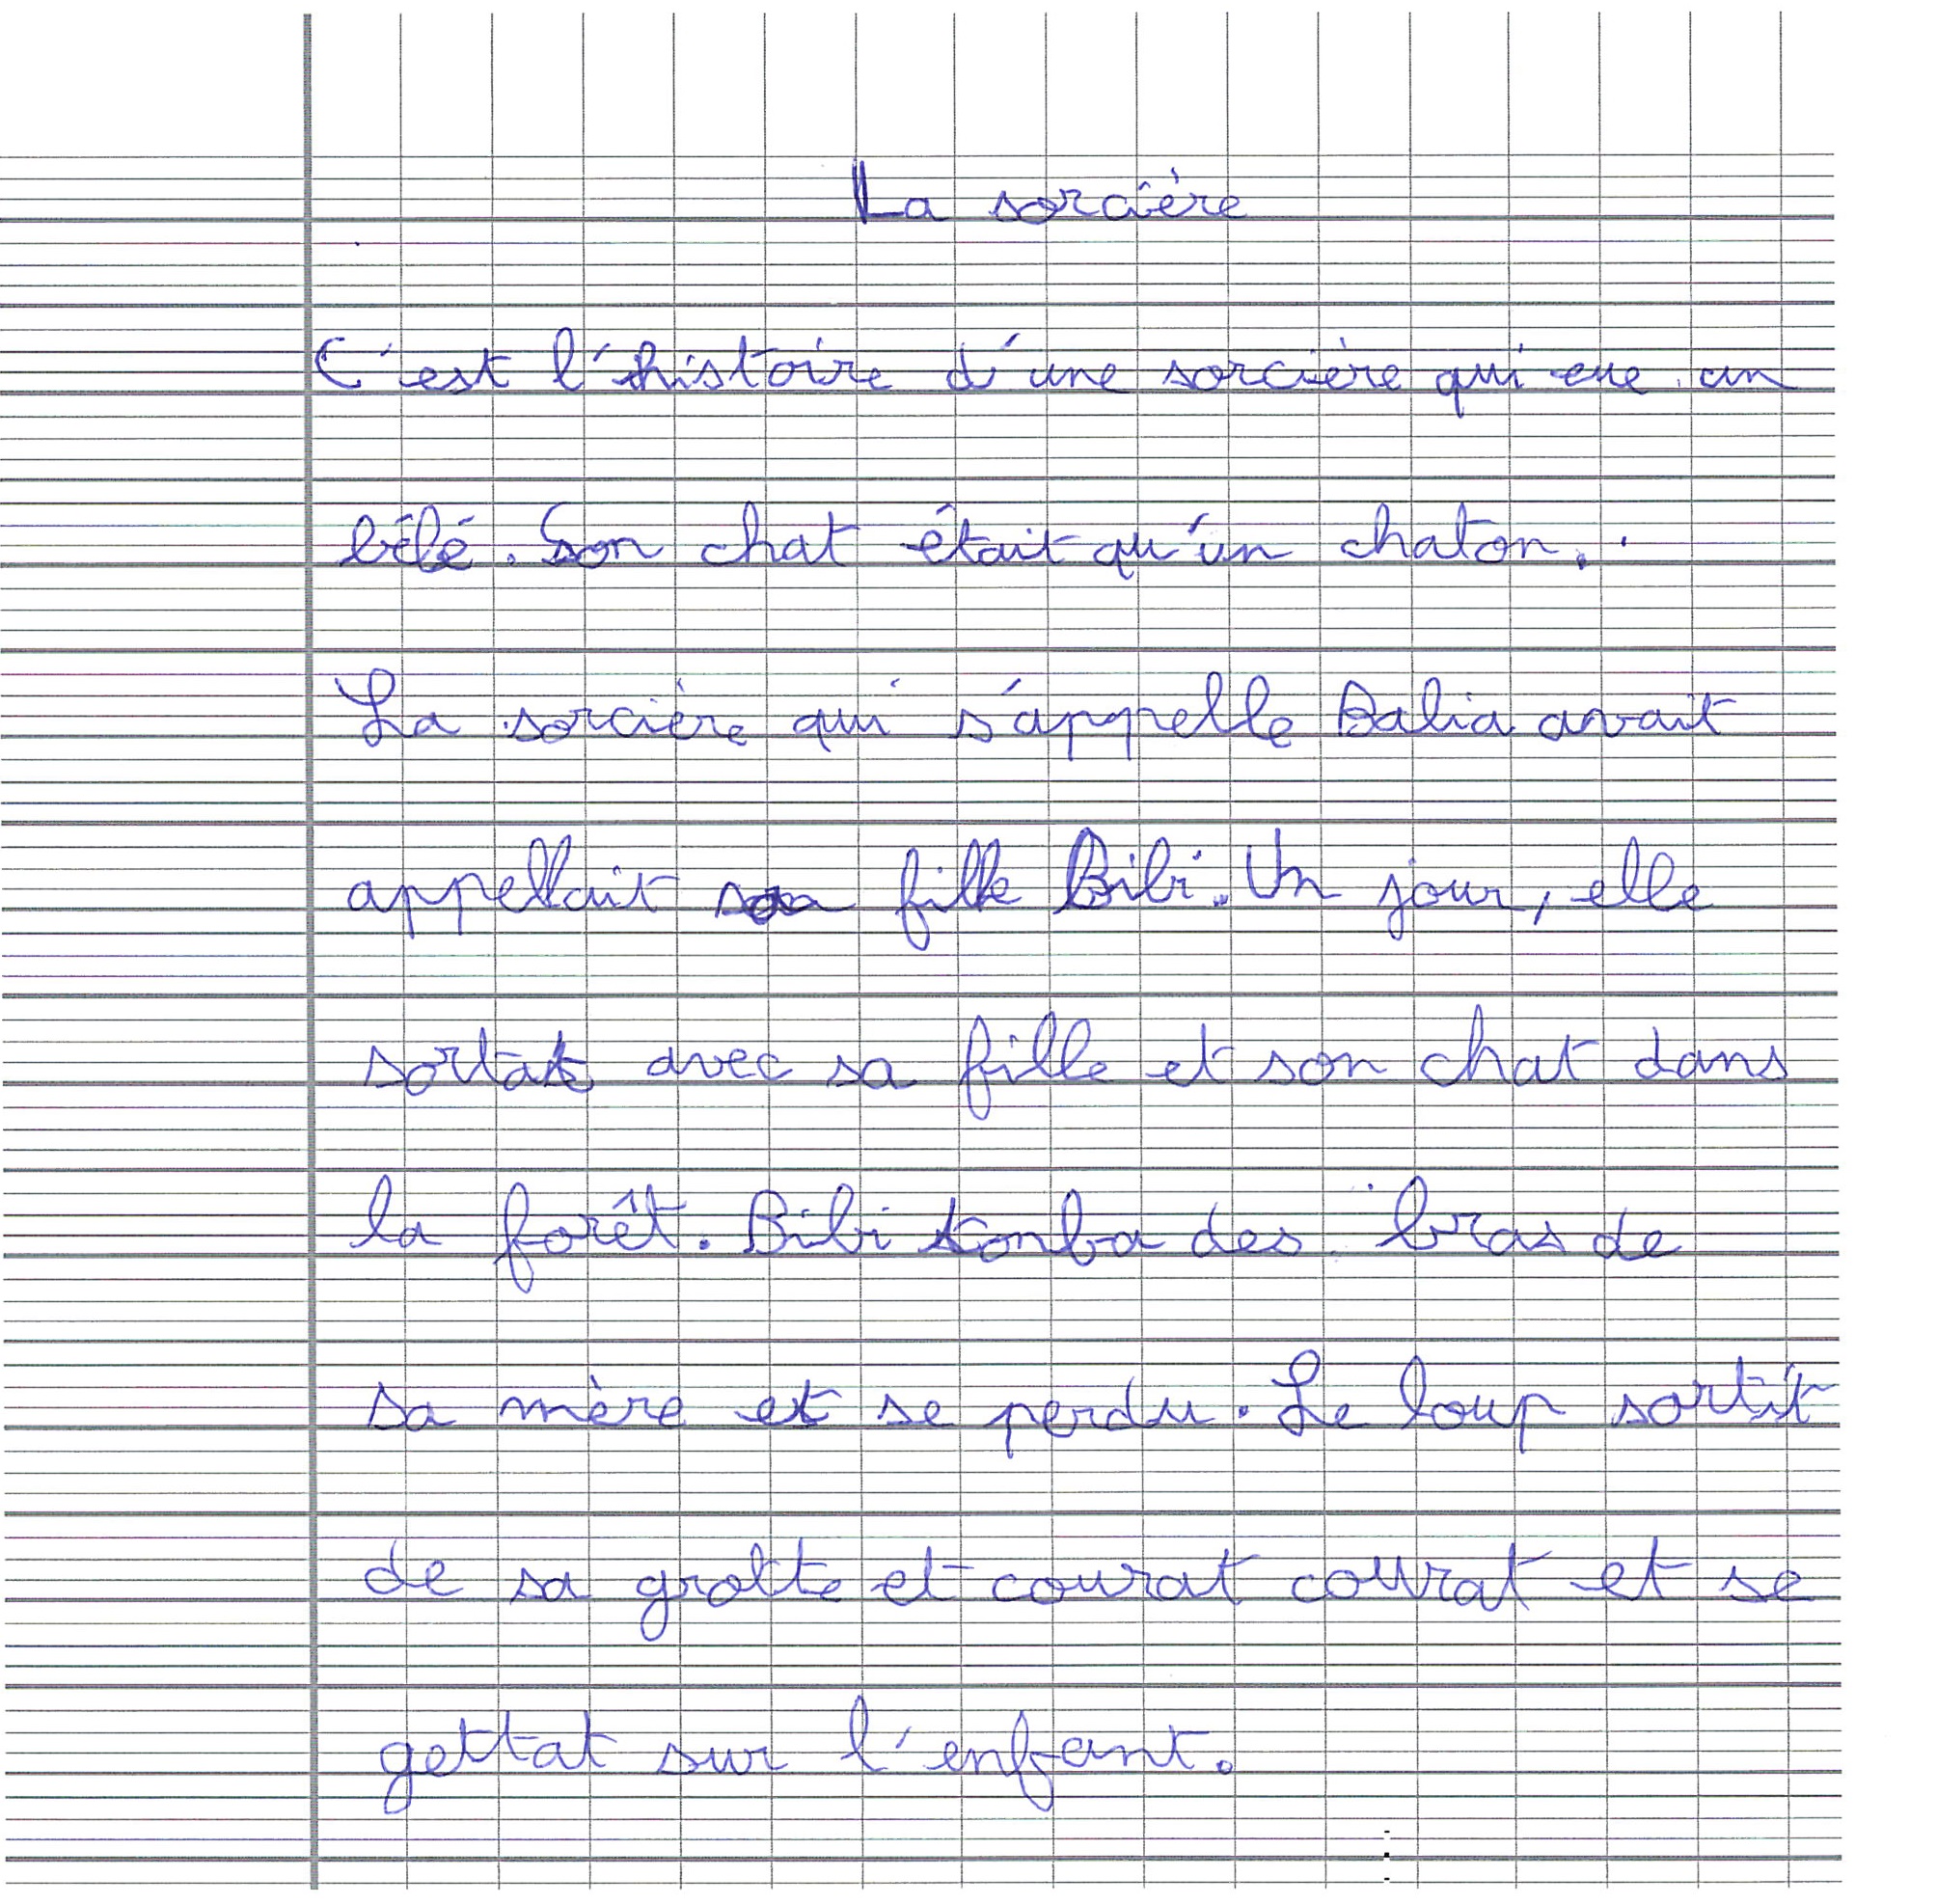 La sorcière
C'est l'histoire d'une sorcière qui eue un
bébé. Son chat était qu'un chaton.
La sorcière qui s'appelle Balia avait
appellait sa fille Bibi. Un jour, elle
sortat avec sa fille et son chat dans
la forêt. Bibi tonba des bras de
sa mère et se perdu. Le loup sortit
de sa grotte et courat courat et se
gettat sur l'enfant.